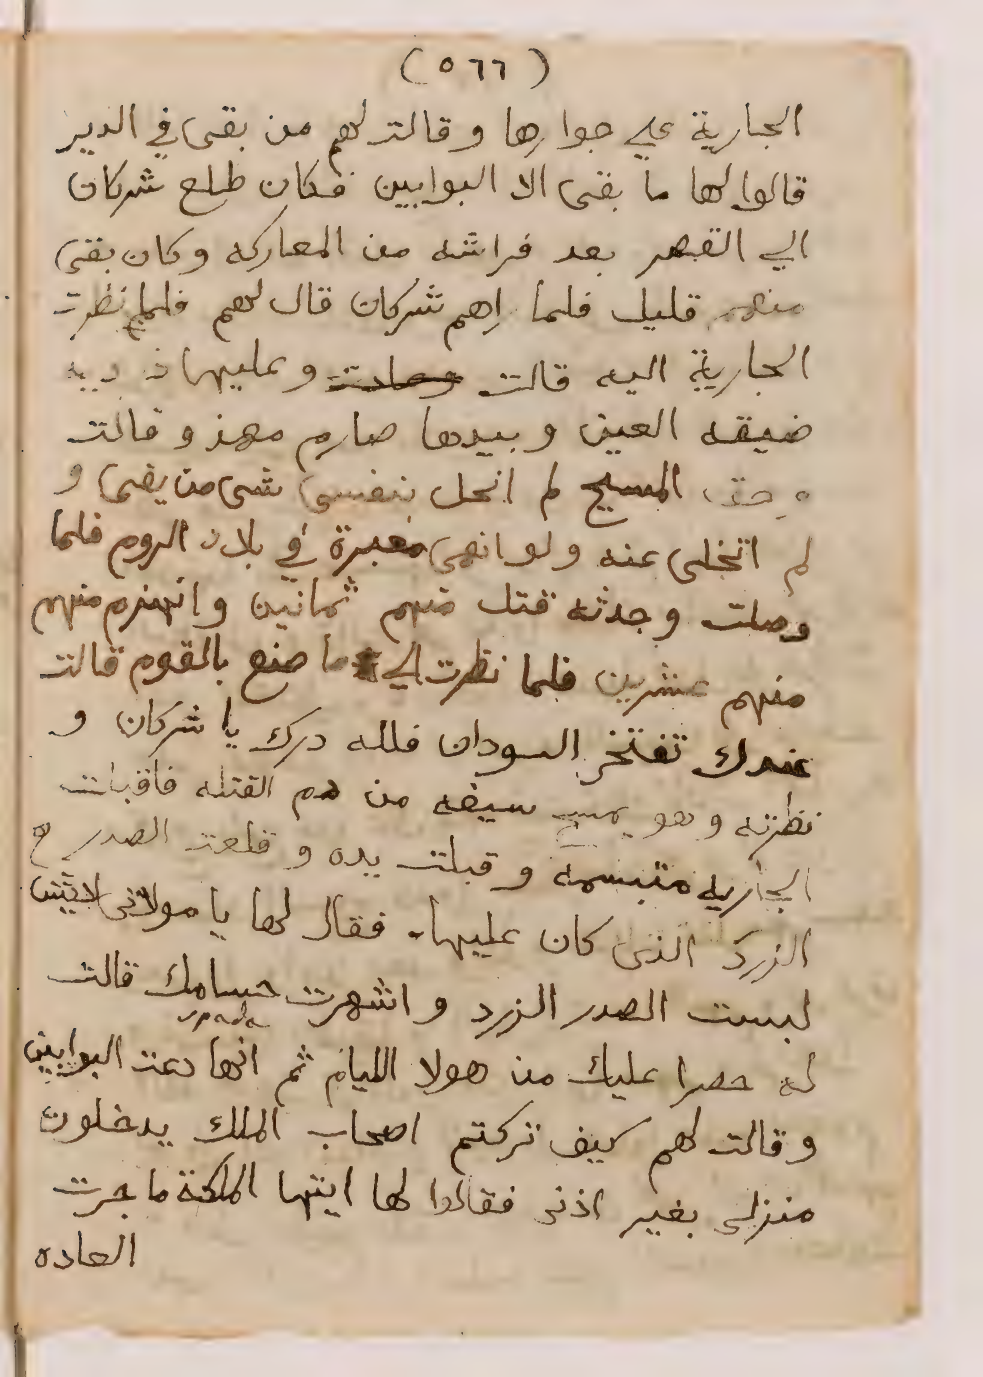 (٥٦٦)
الجارية علي جوارها وقالت لهم من بقى في الدير
قالوا لها ما بقى الا البوابين فكان طلع شركان
الي القصر بعد فراشه من المعاركه وكان بقى
منهم قليل فلما راهم شركان قال لهم فلما نظرت
الجارية اليه قالت وعليها
ضيقه العين وبيدها صارم مهند وقالت
وحق المسيح لم انحل بنفسى شى من يقى و
لم اتخلى عنه ولو انهى معبرة في بلاد الروم فلما
وصلت وجدته قتل منهم ثمانين وانهزم منهم
منهم عشرين فلما نظرت الي ما صنع بالقوم قالت
عندك تفتخر السودان فلله درك يا شركان و
نظرته وهو يمسح سيفه من دم القتله فاقبلت
الجاريه متبسمه وقبلت يده وقلعت الصدر
الزرد الذى كان عليها. فقال لها يا مولاتى لايش
لبست الصدر الزرد واشهرت حسامك قالت
له حصرا عليك من هولا الليام ثم انها دعت البوابين
وقالت لهم كيف تركتم اصحاب الملك يدخلون
منزلى بغير اذنى فقالوا لها ايتها الملكة ما جرت
العاده